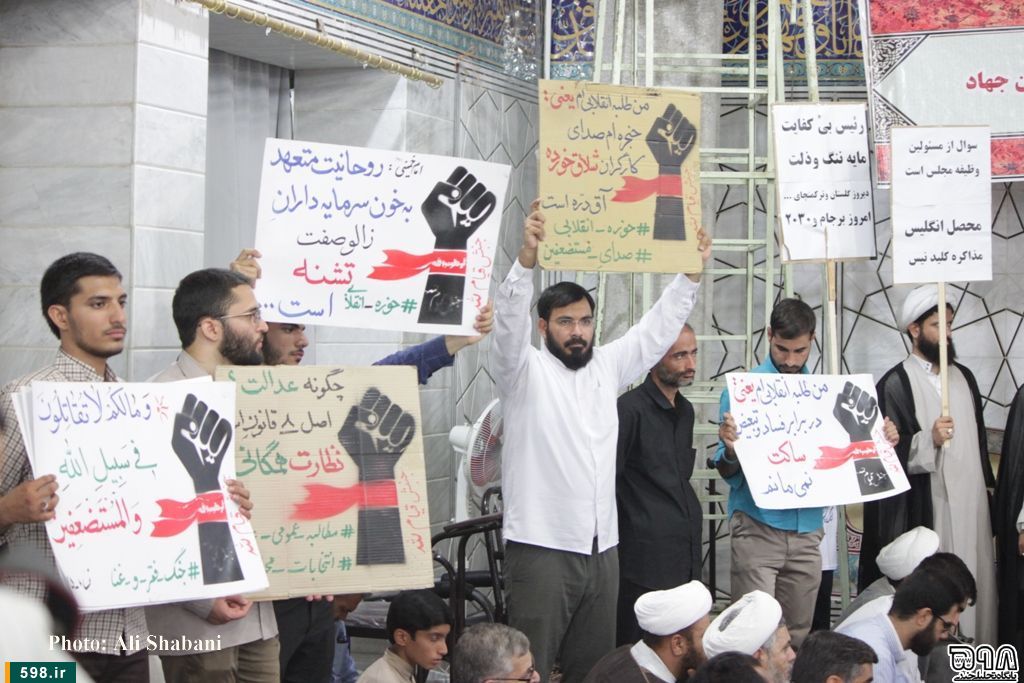 و مالکم لا تقاتلون
في سبيل الله
والمستضعفین
#جنگ_فقر_و_غنا
جنبش قیام لله
چگونه عدالت؟
اصل ۸ قانون
نظارت همگانی
#مطالبه_عمومی
#انتخابات
جنبش قیام لله
امام خمینی: روحانیت متعهد
به خون سرمایه داران
زالو صفت
تشنه
است...
#حوزه_انقلابی
جنبش قیام لله
من طلبه انقلابی ام یعنی:
حنجره ام صدای
کارگران شلاق خورده
آق دره است
#حوزه_انقلابی
#صدای_مستضعفین
من طلبه انقلابی ام یعنی:
در برابر فساد و تبعیض
ساکت
نمی مانم
رئیس بی کفایت
مایه ننگ و ذلت
دیروز گلستان و ترکمنچای ...
امروز برجام و ۲۰۳۰
سوال از مسئولین
وظیفه مجلس است
محصل انگلیس
مذاکره کلید نیس
جهاد
Photo: Ali Shabani
598.ir
۵۹۸